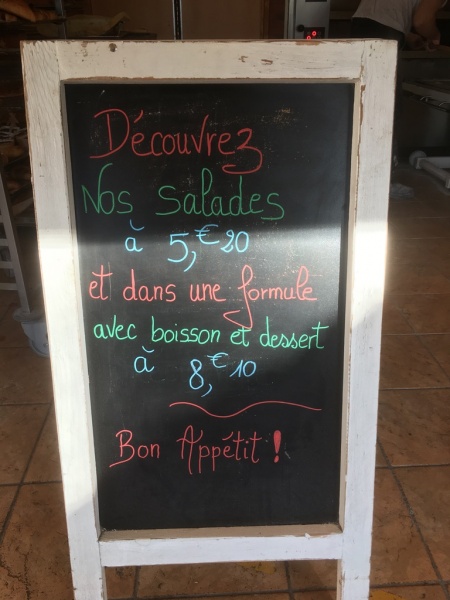 Découvrez
Nos salades
à 5,€20
et dans une formule
avec boisson et dessert
à 8,€10
Bon Appétit !